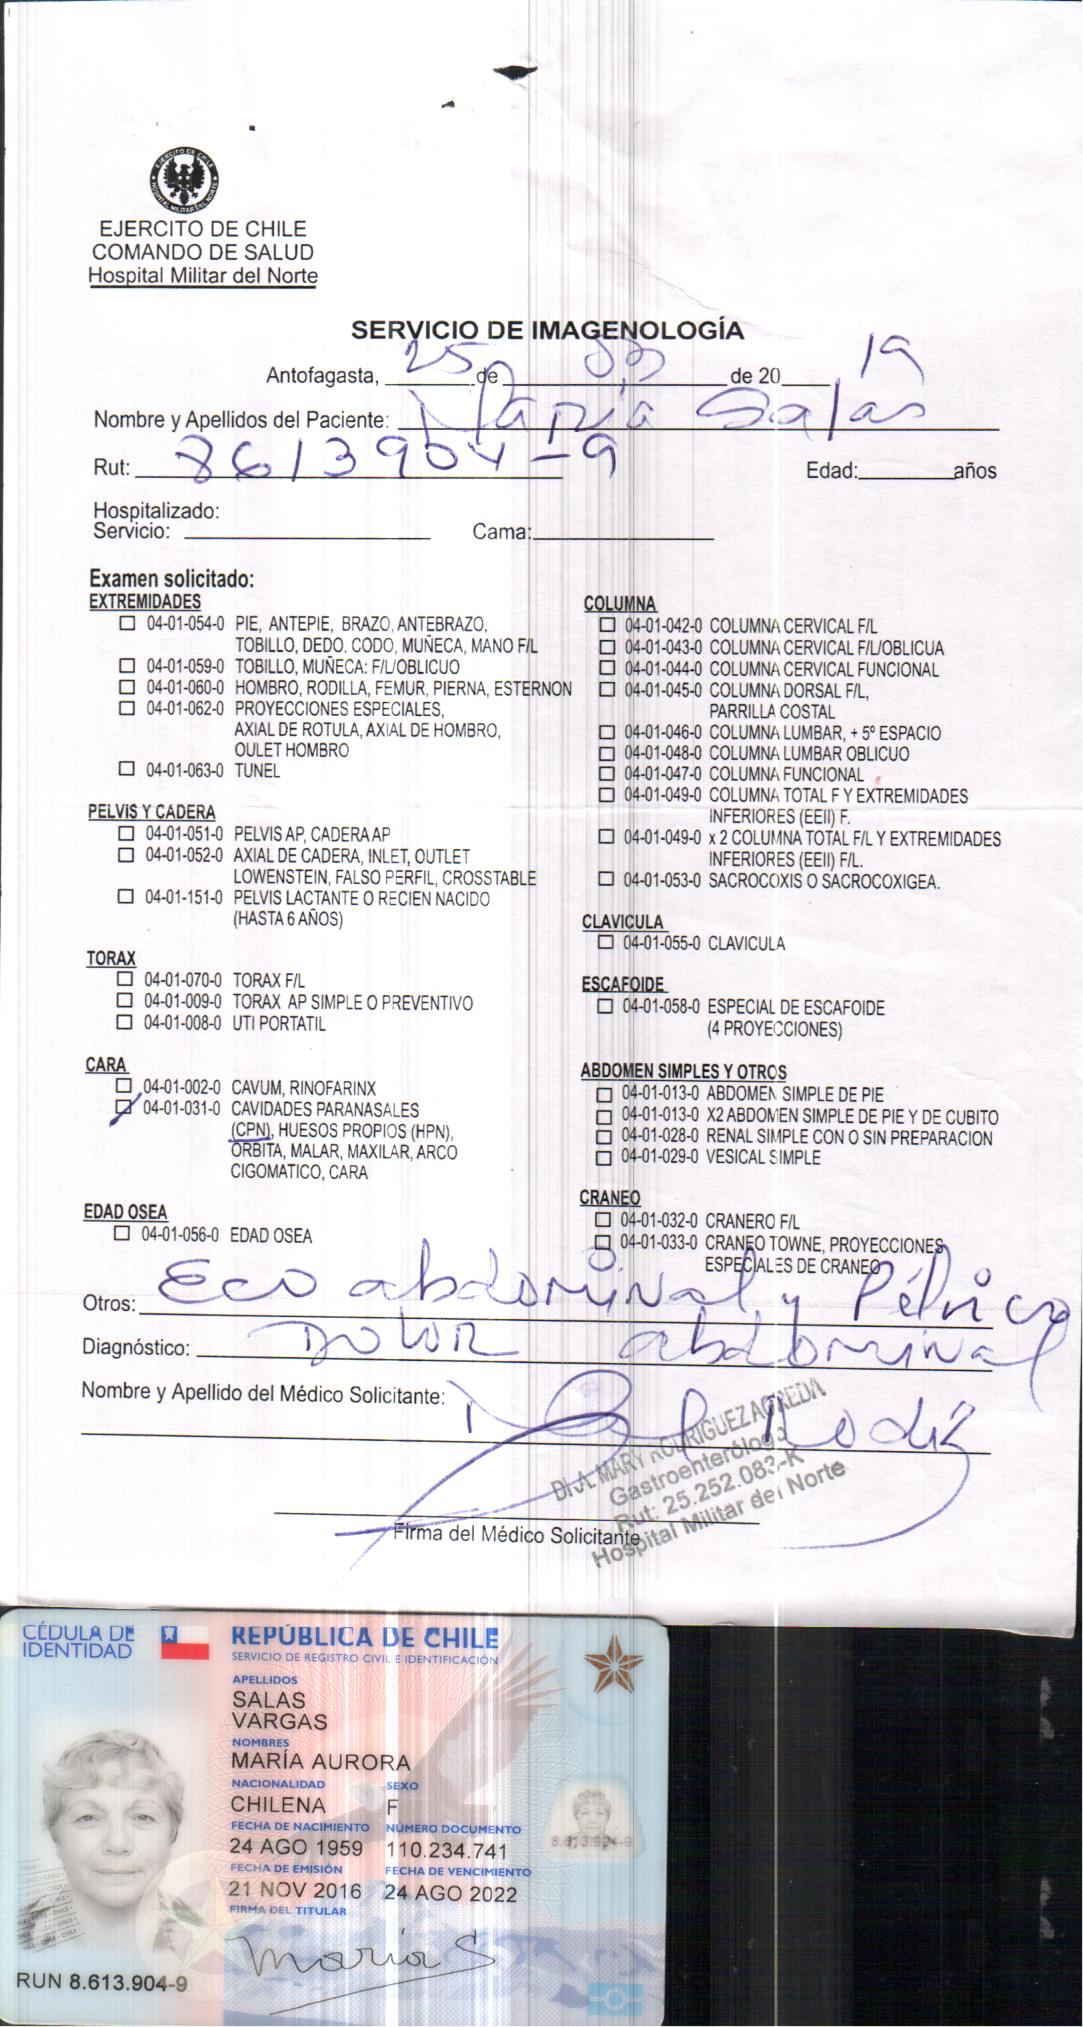 EJERCITO DE CHILE
HOSPITAL MILITAR DEL NORTE
EJERCITO DE CHILE
COMANDO DE SALUD
Hospital Militar del Norte
SERVICIO DE IMAGENOLOGÍA
Antofagasta, 25 de 03 de 20 19
Nombre y Apellidos del Paciente: María Salas
Rut: 8613904-9 Edad: años
Hospitalizado:
Servicio: Cama:
Examen solicitado:
EXTREMIDADES
04-01-054-0 PIE, ANTEPIE, BRAZO, ANTEBRAZO,
TOBILLO, DEDO, CODO, MUÑECA, MANO F/L
04-01-059-0 TOBILLO, MUÑECA: F/L/OBLICUO
04-01-060-0 HOMBRO, RODILLA, FEMUR, PIERNA, ESTERNON
04-01-062-0 PROYECCIONES ESPECIALES,
AXIAL DE ROTULA, AXIAL DE HOMBRO,
OULET HOMBRO
04-01-063-0 TUNEL
PELVIS Y CADERA
04-01-051-0 PELVIS AP, CADERA AP
04-01-052-0 AXIAL DE CADERA, INLET, OUTLET
LOWENSTEIN, FALSO PERFIL, CROSSTABLE
04-01-151-0 PELVIS LACTANTE O RECIEN NACIDO
(HASTA 6 AÑOS)
TORAX
04-01-070-0 TORAX F/L
04-01-009-0 TORAX AP SIMPLE O PREVENTIVO
04-01-008-0 UTI PORTATIL
CARA
04-01-002-0 CAVUM, RINOFARINX
04-01-031-0 CAVIDADES PARANASALES
(CPN), HUESOS PROPIOS (HPN),
ORBITA, MALAR, MAXILAR, ARCO
CIGOMATICO, CARA
EDAD OSEA
04-01-056-0 EDAD OSEA
COLUMNA
04-01-042-0 COLUMNA CERVICAL F/L
04-01-043-0 COLUMNA CERVICAL F/L/OBLICUA
04-01-044-0 COLUMNA CERVICAL FUNCIONAL
04-01-045-0 COLUMNA DORSAL F/L,
PARRILLA COSTAL
04-01-046-0 COLUMNA LUMBAR, + 5º ESPACIO
04-01-048-0 COLUMNA LUMBAR OBLICUO
04-01-047-0 COLUMNA FUNCIONAL
04-01-049-0 COLUMNA TOTAL F Y EXTREMIDADES
INFERIORES (EEII) F.
04-01-049-0 x 2 COLUMNA TOTAL F/L Y EXTREMIDADES
INFERIORES (EEII) F/L.
04-01-053-0 SACROCOXIS O SACROCOXIGEA.
CLAVICULA
04-01-055-0 CLAVICULA
ESCAFOIDE
04-01-058-0 ESPECIAL DE ESCAFOIDE
(4 PROYECCIONES)
ABDOMEN SIMPLES Y OTROS
04-01-013-0 ABDOMEN SIMPLE DE PIE
04-01-013-0 X2 ABDOMEN SIMPLE DE PIE Y DE CUBITO
04-01-028-0 RENAL SIMPLE CON O SIN PREPARACION
04-01-029-0 VESICAL SIMPLE
CRANEO
04-01-032-0 CRANERO F/L
04-01-033-0 CRANEO TOWNE, PROYECCIONES
ESPECIALES DE CRANEO
Otros: Eco abdominal y Pélvico
Diagnóstico: Dolor abdominal
Nombre y Apellido del Médico Solicitante:
MARY RODRIGUEZ AGREDA
Gastroenterólogo
Rut: 25.252.083-K
Hospital Militar del Norte
Firma del Médico Solicitante
CÉDULA DE
IDENTIDAD
REPÚBLICA DE CHILE
SERVICIO DE REGISTRO CIVIL E IDENTIFICACIÓN
APELLIDOS
SALAS
VARGAS
NOMBRES
MARÍA AURORA
NACIONALIDAD SEXO
CHILENA F
FECHA DE NACIMIENTO NÚMERO DOCUMENTO
24 AGO 1959 110.234.741
FECHA DE EMISIÓN FECHA DE VENCIMIENTO
21 NOV 2016 24 AGO 2022
FIRMA DEL TITULAR
María S
8.613.904-9
RUN 8.613.904-9